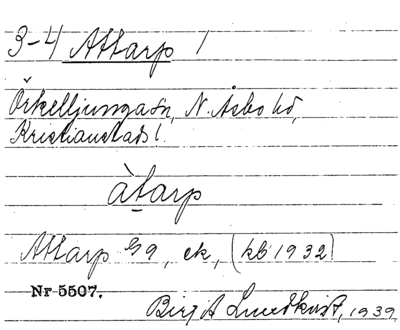 3-4 Attarp 1
Örkelljunga sn, N. Åsbo hd,
Kristianstads l.
àtarp
Attarp 9, ek, (kb 1932)
Nr 5507.
Birgit Lundkvist, 1939